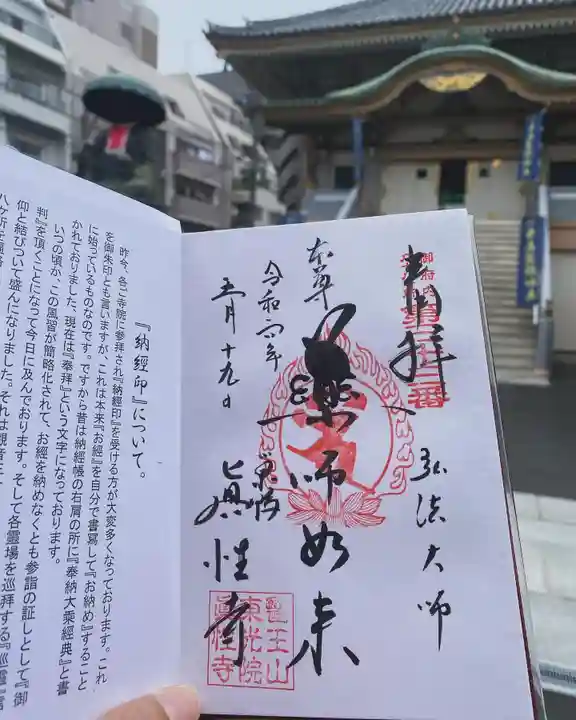 奉拝
弘法大師
本尊
薬師如来
令和二年
五月十九日
巣鴨
眞性寺
御府内
第三十三番
醫王山
東光院
眞性寺
『納經印』について。
昨今、各ご寺院に参拝され『納經印』を受ける方が大変多くなっております。これ
を御朱印とも言いますが、これは本来『お經』を自分で書写して『お納め』すること
に始っているものなのです。ですから昔は納經帳の右肩の所に『奉納大乗經典』と書
かれておりました、現在は『奉拝』という文字になっております。
いつの頃か、この風習が簡略化されて、お經を納めなくとも参詣の証しとして『御
判』を頂くことになって今日に及んでおります。そして各霊場を巡拝する『巡霊』
仰と結びついて盛んになりました。それは観音